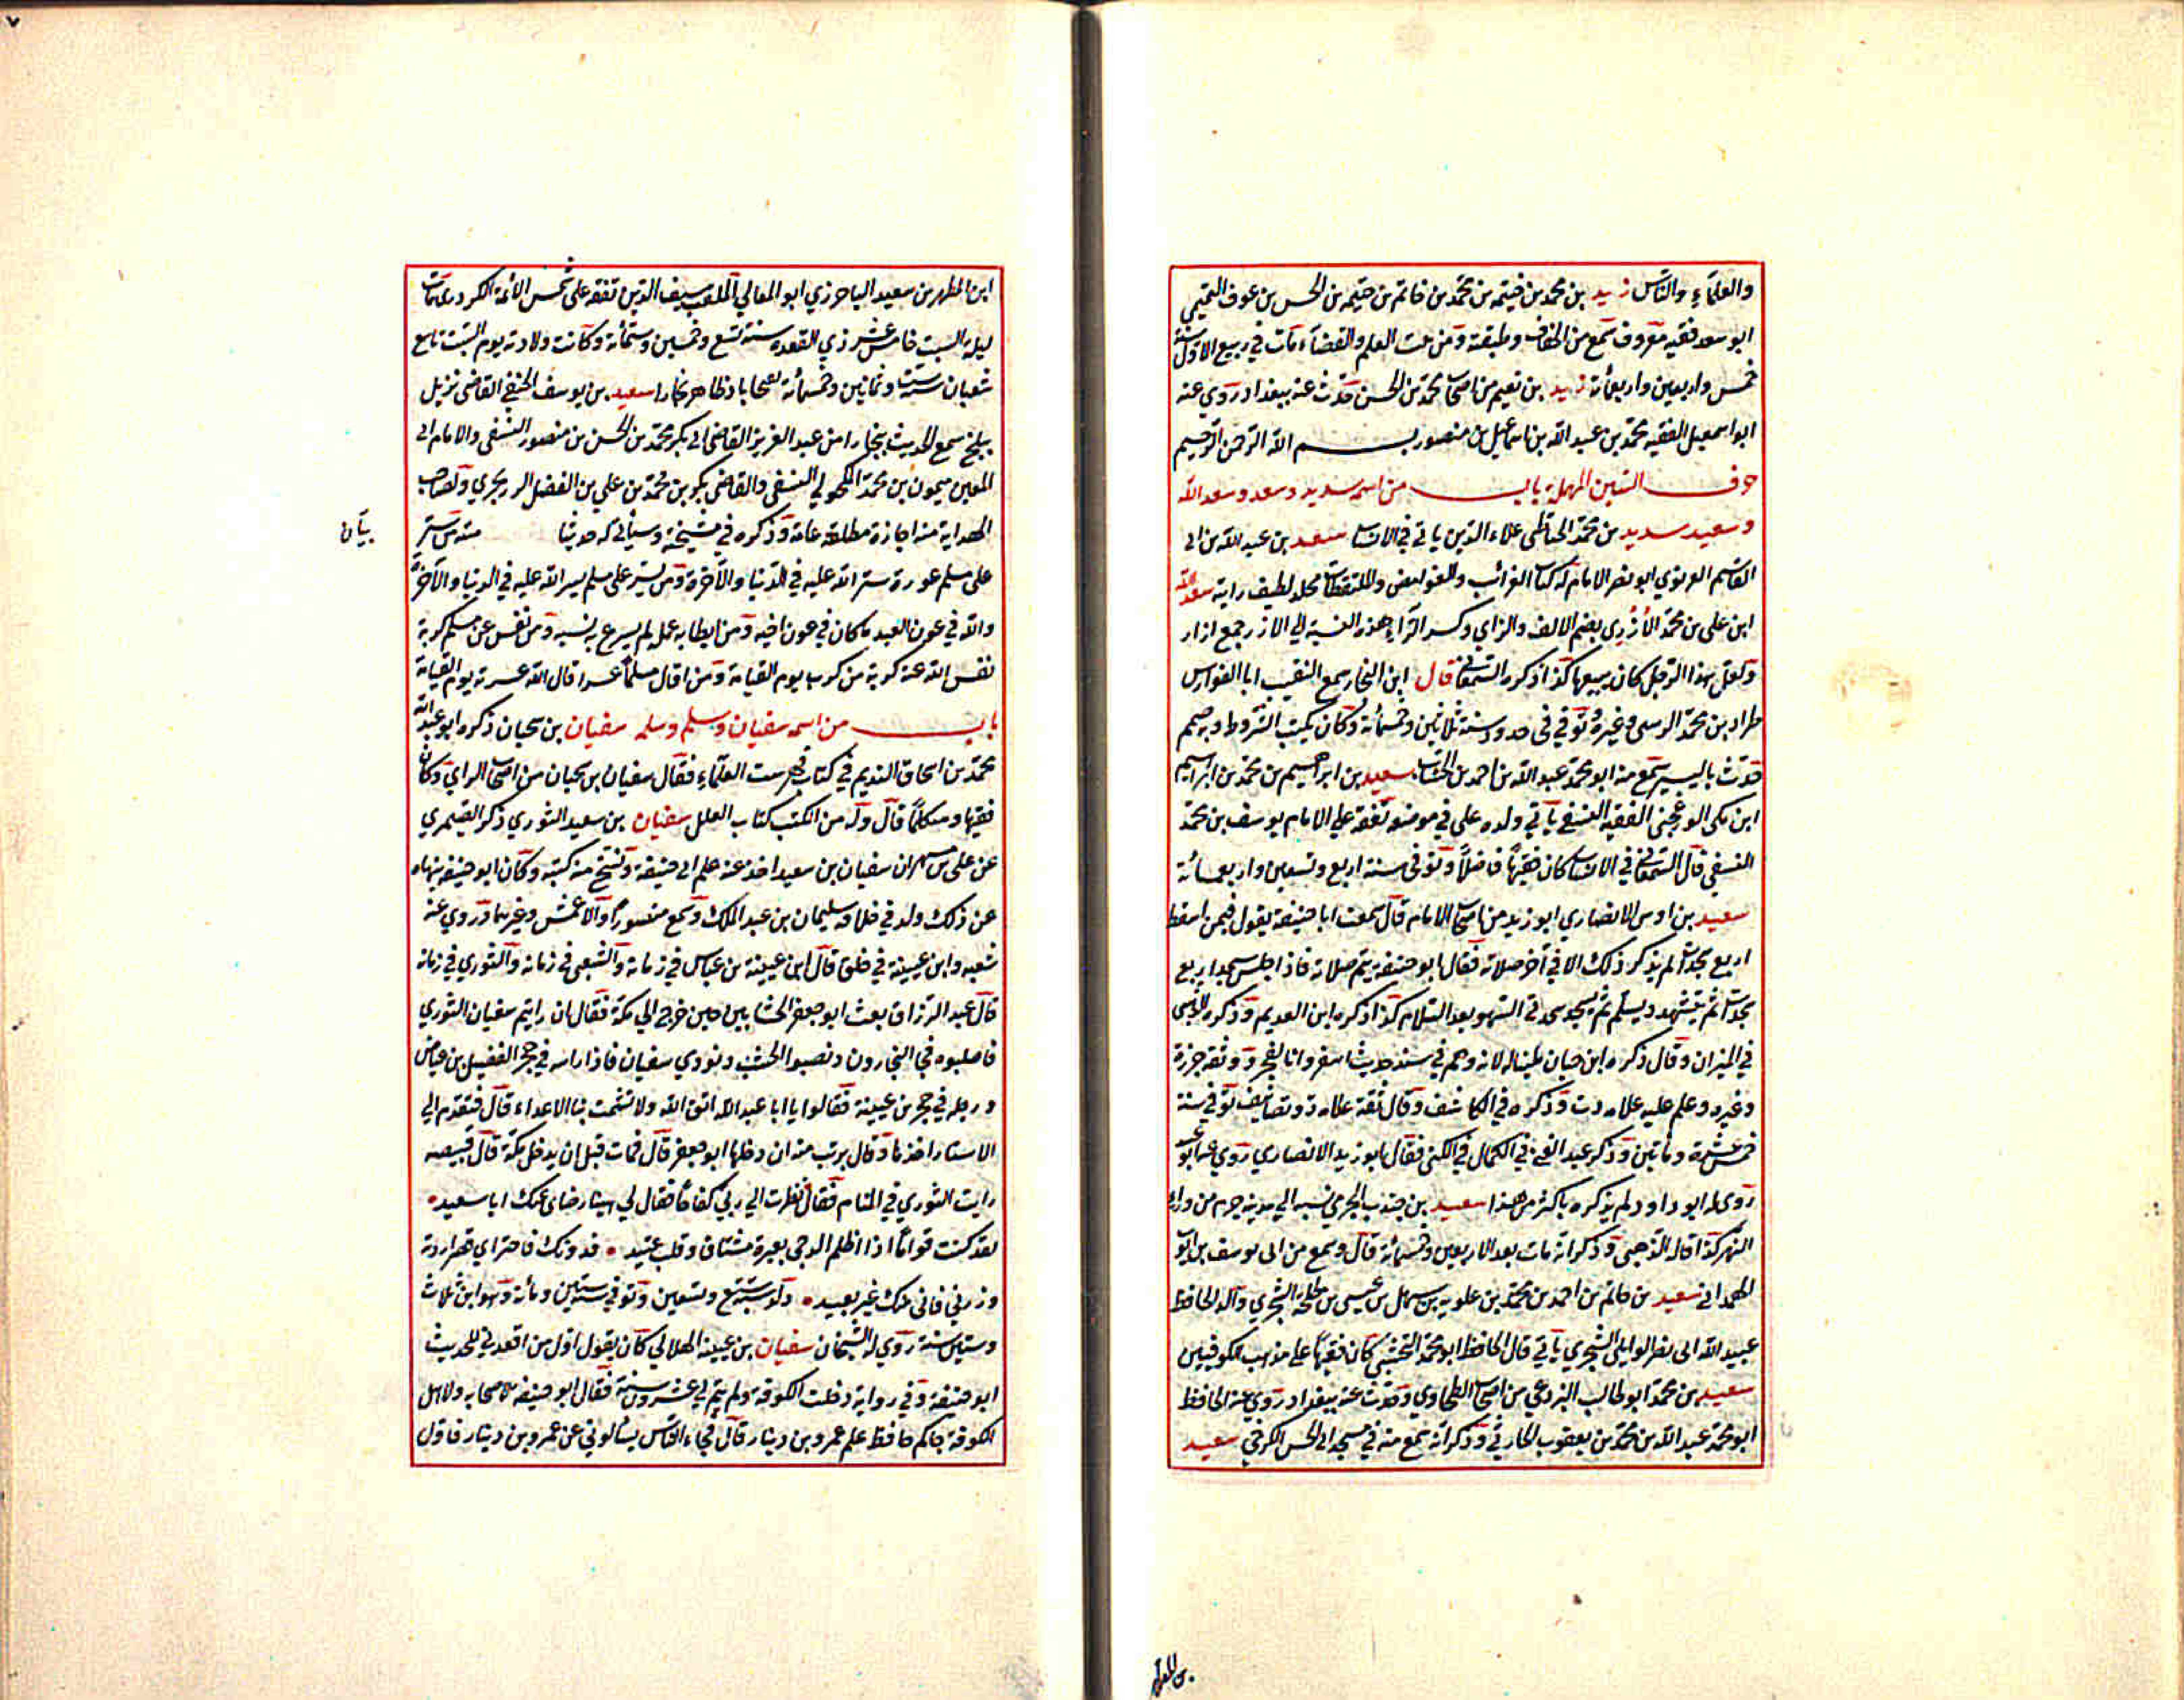 والعلماء والناس زيد بن محمد بن خيثمه بن محمد بن حاتم بن خيثمه بن الحسن بن عوف التميمي
ابو سعد فقيه معروف سمع من الخفاف وطبقته ومن بيت العلم والقضاء مات في ربيع الاول سنة
خمس واربعين واربعمائة زيد بن نعيم من اصحاب محمد بن الحسن حدث عنه ببغداد روي عنه
ابو اسمعيل الفقيه محمد بن عبد الله بن اسماعيل بن منصور بسم الله الرحمن الرحيم
حرف السين المهملة باب من اسمه سديد وسعد وسعد الله
وسعيد سديد بن محمد الحناطي علاء الدين ياتي في الانساب سعد بن عبد الله بن ابي
القاسم الغزنوي ابو نصر الامام له كتاب الغرائب والغوامض والملتقطات مجلد لطيف رايته سعد الله
ابن علي بن محمد الأزري بضم الالف والزاي وكسر الراء هذه النسبة الي الازر جمع ازار
ولعل هذا الرجل كان يبيعها كذا ذكره السمعاني قال ابن النجار سمع النقيب ابا الفوارس
طراد بن محمد الزينبي وغيره وتوفي في حدود سنة ثلاثين وخمسمائة وكان يكتب الشروط
حدث باليسير سمع منه ابو محمد عبد الله بن احمد بن الخشاب سعيد بن ابراهيم بن محمد بن ابراهيم
ابن مكي الفقيه النسفي ياتي ولده علي في موضعه تفقه علي الامام يوسف بن محمد
النسفي قال السمعاني في الانساب كان فقيها فاضلا وتوفي سنة اربع وتسعين واربعمائة
سعيد بن اوس الانصاري ابو زيد من اصحاب الامام قال سمعت ابا حنيفة يقول فيمن اسقط
اربع سجدات لم يذكر ذلك الا في آخر صلاته فقال ابو حنيفة يتم صلاته فاذا جلس سجد اربع
سجدات ثم يتشهد ويسلم ثم يسجد سجدتي السهو بعد السلام كذا ذكره ابن العديم وذكره الذهبي
في الميزان وقال ذكره ابن حبان ملينا له لانه وهم في سند حديث اسفروا بالفجر ووثقه جزرة
وغيره وعلم عليه علامة دت وذكره في الكاشف وقال ثقة علامة ذو تصانيف توفي سنة
خمس عشرة ومأتين وذكر عبد الغني في الكمال في الكنى فقال ابو زيد الانصاري
روي له ابو داود ولم يذكره باكثر من هذا سعيد بن جندب
النهر كذا قاله الذهبي وذكر انه مات بعد الاربعين وخمسمائة قال وسمع من ابي يوسف بن ايوب
الهمداني سعيد بن حاتم بن احمد بن محمد بن علويه بن سهل بن عيسى بن طلحة السجزي والد الحافظ
عبيد الله ابي نصر الوايلي السجزي ياتي قال الحافظ ابو محمد النخشبي كان فقيها علي مذهب الكوفيين
سعيد بن محمد ابو طالب البردعي من اصحاب الطحاوي وحدث عنه ببغداد روي عنه الحافظ
ابو محمد عبد الله بن محمد بن يعقوب الحارثي وذكر انه سمع منه في مسجد ابي الحسن الكرخي سعيد
ابن المطهر بن سعيد الباخرزي ابو المعالي الملقب سيف الدين تفقه علي شمس الائمة الكردري مات
ليلة السبت خامس عشر ذي القعدة سنة تسع وخمسين وستمائة وكانت ولادته يوم السبت تاسع
شعبان سنة ست وثمانين وخمسمائة بفتحاباد ظاهر بخارا سعيد بن يوسف الحنفي القاضي نزيل
بلخ سمع الحديث ببخارا من عبد العزيز القاضي ابي بكر محمد بن الحسن بن منصور النسفي والامام ابي
المعين ميمون بن محمد المكحولي النسفي والقاضي بكر بن محمد بن علي بن الفضل الزرنجري ولصاحب
الهداية منه اجازة مطلقة عامة وذكره في مشيخته وسياتي له حديثا منه من ستر
بيان
على مسلم عورة ستر الله عليه في الدنيا والآخرة ومن يسر على مسلم يسر الله عليه في الدنيا والآخرة
والله في عون العبد ما كان في عون اخيه ومن ابطا به عمله لم يسرع به نسبه ومن نفس عن مسلم كربة
نفس الله عنه كربة من كرب يوم القيامة ومن اقال مسلما عسرا قال الله عسرته يوم القيامة
باب من اسمه سفيان وسلم وسلمه سفيان بن سحبان ذكره ابو عبد الله
محمد بن اسحاق النديم في كتاب فهرست العلماء فقال سفيان بن سحبان من اصحاب الراي وكان
فقيها ومتكلما قال وله من الكتب كتاب العلل سفيان بن سعيد الثوري ذكر الصيمري
عن علي بن مسهر ان سفيان بن سعيد اخذ عنه علم ابي حنيفة ونسخ منه كتبه وكان ابو حنيفة ينهاه
عن ذلك ولد في خلافة سليمان بن عبد الملك وسمع منصورا والاعمش وغيرهما وروي عنه
شعبه وابن عيينة في خلق قال ابن عيينة بن عباس في زمانه والشعبي في زمانه والثوري في زمانه
قال عبد الرزاق بعث ابو جعفر الخشابين حين خرج الي مكة فقال ان رايتم سفيان الثوري
فاصلبوه فجا النجارون ونصبوا الخشب ونودي سفيان فاذا راسه في حجر الفضيل بن عياض
ورجله في حجر بن عيينة فقالوا يا ابا عبد الله اتق الله ولا تشمت بنا الاعداء قال فتقدم الي
الاستار اخذها وقال برئت منه ان دخلها ابو جعفر قال فمات قبل ان يدخل مكة قال قبيصه
رايت الثوري في المنام فقال نظرت الي ربي كفاحا فقال لي هنيئا رضاي عنك ابا سعيد
لقد كنت قواما اذا اظلم الدجي بعبرة مشتاق وقلب عميد فدونك فاختر اي قصر اردته
وزرني فاني عنك غير بعيد ولد سنة سبع وتسعين وتوفي سنة ستين ومائة وهو ابن ثلاث
وستين سنة روي له الشيخان سفيان بن عيينة الهلالي كان يقول اول من اقعدني للحديث
ابو حنيفة وفي رواية دخلت الكوفة ولم يتم لي عشرون سنة فقال ابو حنيفة لاصحابه ولاهل
الكوفة جاكم حافظ علم عمرو بن دينار قال فجاء الناس يسألوني عن عمرو بن دينار فاول